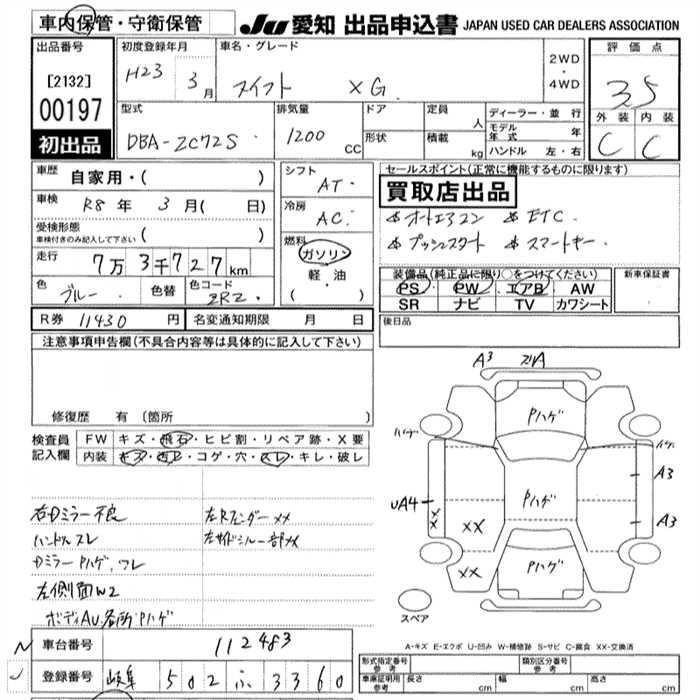 車内保管・守衛保管
JU 愛知 出品申込書 JAPAN USED CAR DEALERS ASSOCIATION
出品番号
[2132]
00197
初出品
初度登録年月
H23 3月
車名・グレード
スイフト XG
2WD
・
4WD
評価点
3.5
外装 内装
C C
型式
DBA-ZC72S
排気量
1200 CC
ドア
形状
定員 人
積載 kg
ディーラー・並行
モデル年式 年
ハンドル 左・右
車歴 自家用・( )
車検 R8年 3月( 日)
受検形態
車検付きのみ記入して下さい ( )
走行 7万3千727km
色 ブルー 色替 色コード ZRZ
シフト
AT
冷房
AC
燃料
ガソリン
軽・油
( )
セールスポイント(正常に機能するものに限ります)
買取店出品
オートエアコン ETC
プッシュスタート スマートキー
装備品(純正品に限り○をつけてください)
PS PW エアB AW
SR ナビ TV カワシート
新車保証書
後日品
R券 11430円 名変通知期限 月 日
注意事項申告欄(不具合内容等は具体的に記入して下さい)
修復歴 有(箇所 )
検査員記入欄
FW キズ・飛石・ヒビ割・リペア跡・X要
内装 キズ・汚れ・コゲ・穴・スレ・キレ・破レ
右Dミラー不良 左Rフェンダーxx
ハンドルスレ 左サイドシルー部xx
Dミラー Pハゲ、ワレ
左側面W2
ボディAU各所Pハゲ
A3
Pハゲ
A3
UA4 xx xx Pハゲ
A3
xx Pハゲ
スペア
A-キズ E-エクボ U-凹み W-補修跡 S-サビ C-腐食 XX-交換済
車台番号 112483
登録番号 岐阜 502 ふ 3360
形式指定番号
参考
類別区分番号
参考
車庫証明用
参考
長さ cm 幅 cm 高さ cm